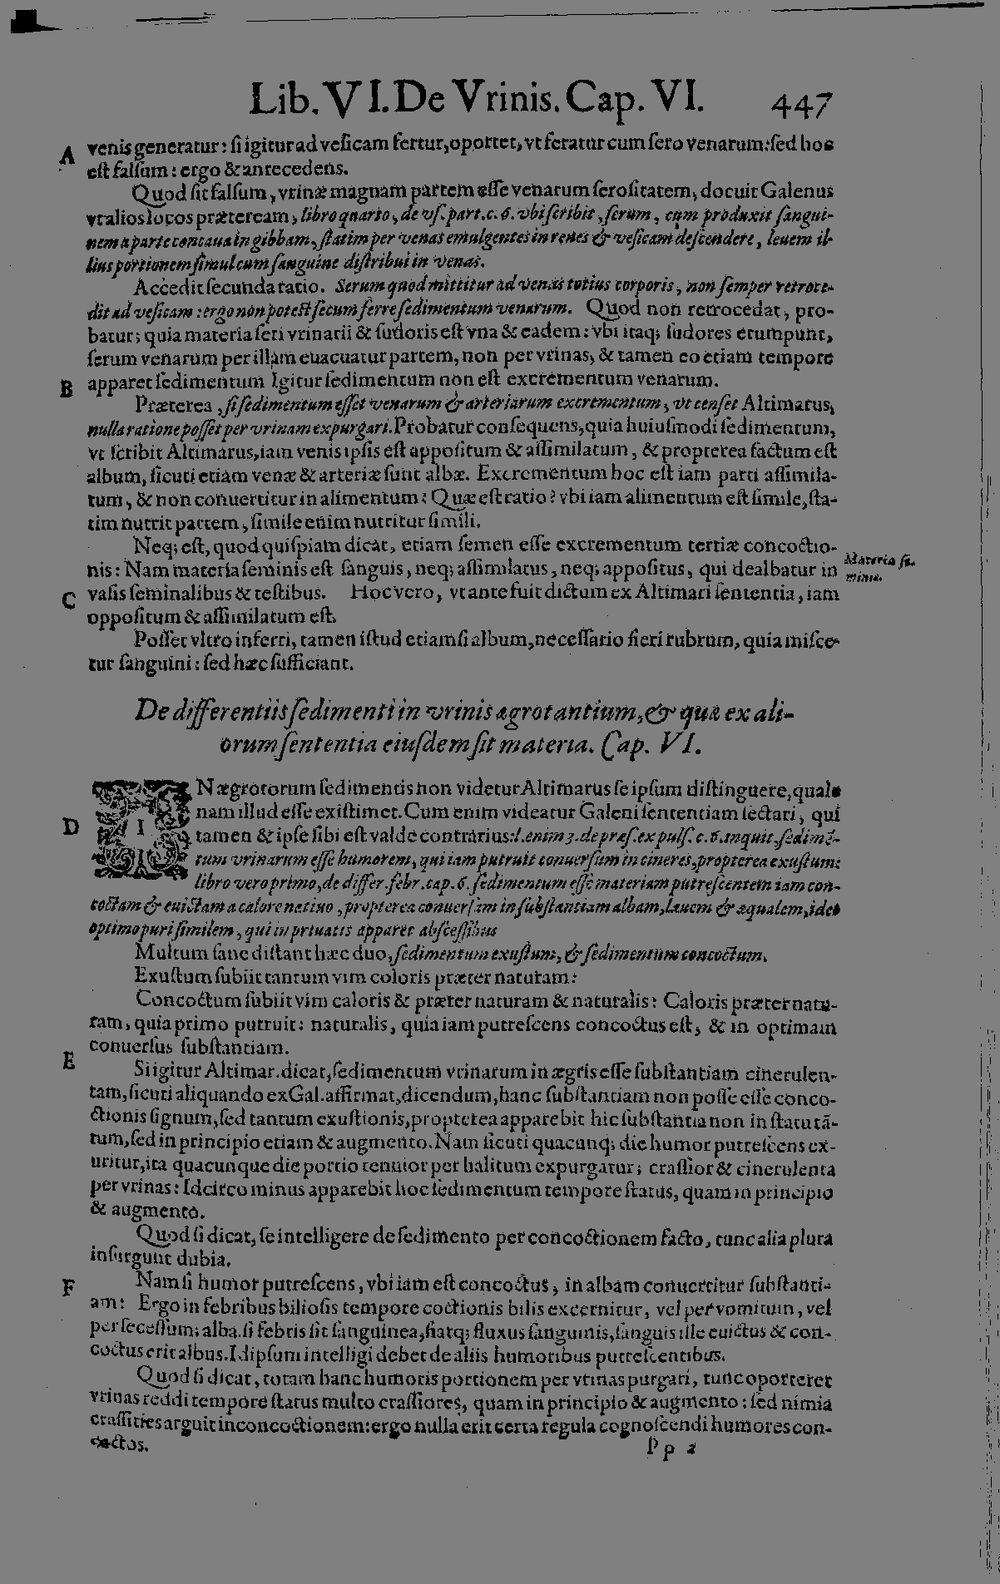 Lib. VI. De Vrinis. Cap. VI. 447
A venis generatur: si igitur ad vesicam fertur, oportet, vt feratur cum sero venarum: sed hoc
est falsum: ergo & antecedens.
Quod sit falsum, vrinæ magnam partem esse venarum serositatem, docuit Galenus
vt alios locos præteream, libro quarto, de vs. part. c. 6. vbi scribit, serum, cum produxit sangui-
nem à parte concaua in gibbam, statim per venas emulgentes in renes & vesicam descendere, leuem il-
lius portionem simul cum sanguine distribui in venas.
Accedit secunda ratio. Serum quod mittitur ad venas totius corporis, non semper retroce-
dit ad vesicam: ergo non potest secum ferre sedimentum venarum. Quod non retrocedat, pro-
batur; quia materia seri vrinarii & sudoris est vna & eadem: vbi itaq; sudores erumpunt,
serum venarum per illam euacuatur partem, non per vrinas, & tamen eo etiam tempore
B apparet sedimentum Igitur sedimentum non est excrementum venarum.
Præterea, si sedimentum esset venarum & arteriarum excrementum, vt censet Altimarus,
nulla ratione posset per vrinam expurgari. Probatur consequens, quia huiusmodi sedimentum,
vt scribit Altimarus, iam venis ipsis est appositum & assimilatum, & propterea factum est
album, sicuti etiam venæ & arteriæ sunt albæ. Excrementum hoc est iam parti assimila-
tum, & non conuertitur in alimentum? Quæ est ratio? vbi iam alimentum est simile, sta-
tim nutrit partem, simile enim nutritur simili.
Neq; est, quod quispiam dicat, etiam semen esse excrementum tertiæ concoctio-
nis: Nam materia seminis est sanguis, neq; assimilatus, neq; appositus, qui dealbatur in
Materia se-
minis.
C vasis seminalibus & testibus. Hoc vero, vt ante fuit dictum ex Altimari sententia, iam
oppositum & assimilatum est.
Posset vltro inferri, tamen istud etiamsi album, necessario fieri rubrum, quia misce-
tur sanguini: sed hæc sufficiant.
De differentiis sedimenti in vrinis ægrotantium, & qua ex ali-
orum sententia eiusdem sit materia. Cap. VI.
IN ægrotorum sedimentis non videtur Altimarus se ipsum distinguere, quale
nam illud esse existimet. Cum enim videatur Galeni sententiam sectari, qui
D tamen & ipse sibi est valde contrarius: l. enim 3. de præs. ex puls. c. 6. inquit, sedimẽ-
tum vrinarum esse humorem, qui iam putruit conuersum in cineres, propterea exustum:
libro vero primo, de differ. febr. cap. 6. sedimentum esse materiam putrescentem iam con-
coctam & euictam a calore natiuo, propterea conuersam in substantiam albam, læuem & æqualem, ideo
optimo puri similem, qui in priuatis apparet abscessibus
Multum sane distant hæc duo, sedimentum exustum, & sedimentum concoctum.
Exustum subiit tantum vim coloris præter naturam:
Concoctum subiit vim caloris & præter naturam & naturalis: Caloris præter natu-
ram, quia primo putruit: naturalis, quia iam putrescens concoctus est, & in optimam
conuersus substantiam.
E Si igitur Altimar. dicat, sedimentum vrinarum in ægris esse substantiam cinerulen-
tam, sicuti aliquando ex Gal. affirmat, dicendum, hanc substantiam non posse esse conco-
ctionis signum, sed tantum exustionis, propterea apparebit hic substantia non in statu tã-
tum, sed in principio etiam & augmento. Nam sicuti quacunq; die humor putrescens ex-
uritur, ita quacunque die portio tenuior per halitum expurgatur; crassior & cinerulenta
per vrinas: Idcirco minus apparebit hoc sedimentum tempore status, quam in principio
& augmento.
Quod si dicat, se intelligere de sedimento per concoctionem facto, tunc alia plura
insurgunt dubia.
F Nam si humor putrescens, vbi iam est concoctus, in albam conuertitur substanti-
am: Ergo in febribus biliosis tempore coctionis bilis excernitur, vel per vomitum, vel
per secessum; alba. si febris sit sanguinea, fiatq; fluxus sanguinis, sanguis ille euictus & con-
coctus erit albus. Id ipsum intelligi debet de aliis humoribus putrescentibus.
Quod si dicat, totam hanc humoris portionem per vrinas purgari, tunc oporteret
vrinas reddi tempore status multo crassiores, quam in principio & augmento: sed nimia
crassities arguit inconcoctionem: ergo nulla erit certa regula cognoscendi humores con-
coctos.
Pp 2